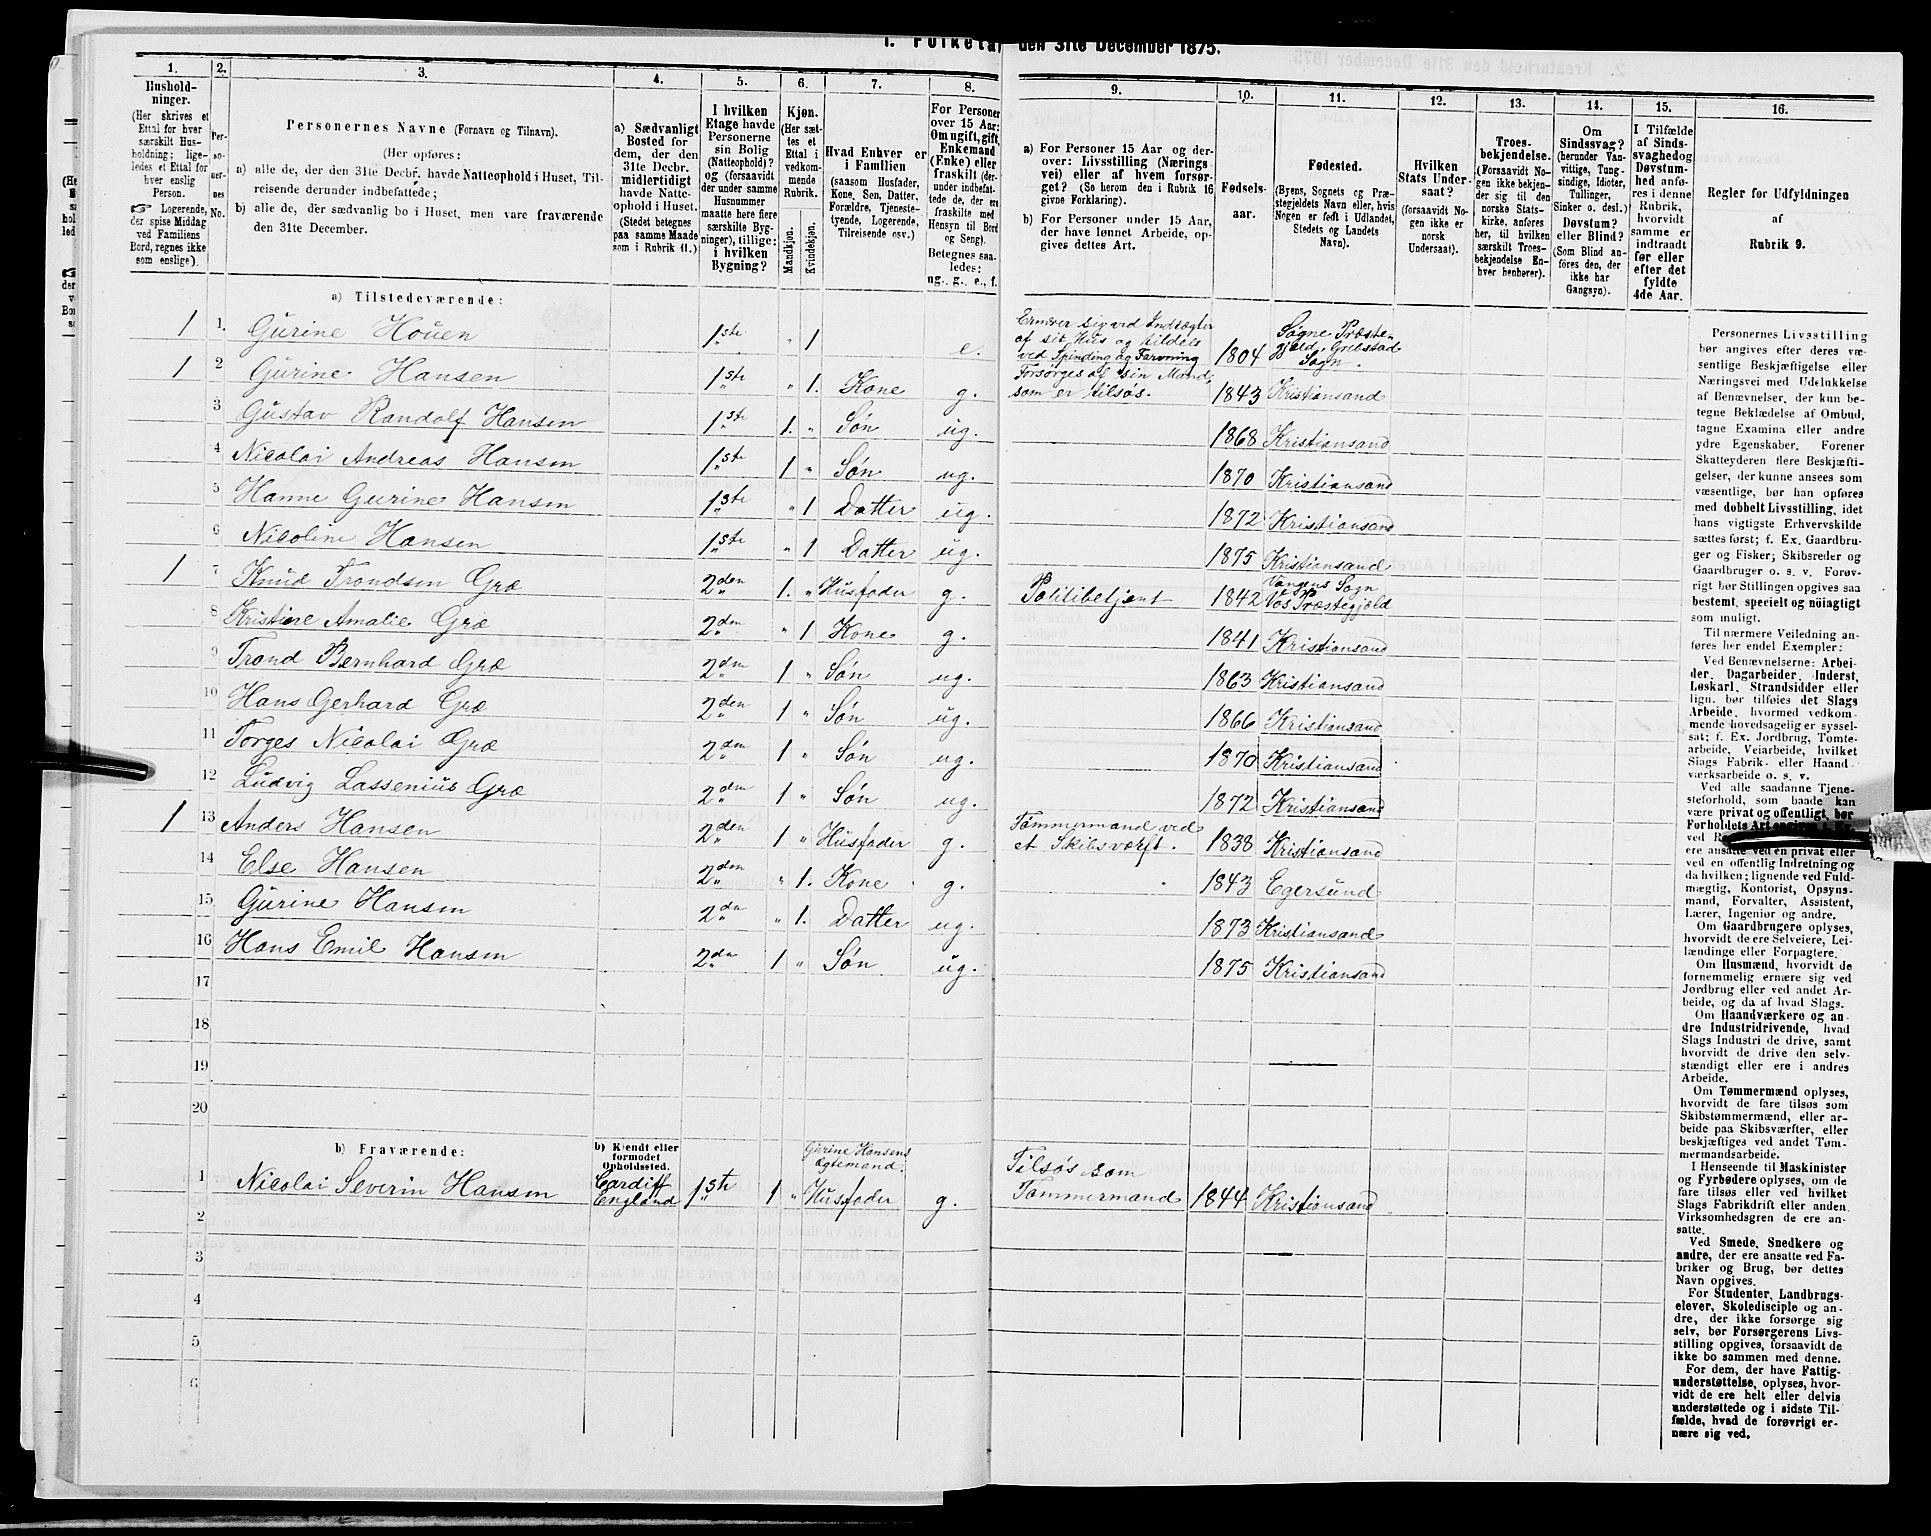 1. Folketal den 31te December 1875.
1.
Hushold-
ninger.
(Her skrives et
Ettal for hver
særskilt Hus-
holdning; lige-
ledes et Ettal for
hver enslig
Person.
☞ Logerende,
der spise Middag
ved Familiens
Bord, regnes ikke
som enslige).
2.
Per-
so-
ner-
nes
No.
3.
Personernes Navne (Fornavn og Tilnavn).
(Her opføres:
a) alle de, der den 31te Decbr. havde Natteophold i Huset, Til-
reisende derunder indbefattede;
b) alle de, der sædvanlig bo i Huset, men vare fraværende
den 31te December.
4.
a) Sædvanligt
Bosted for
dem, der den
31te Decbr.
midlertidigt
havde Natte-
ophold i Huset.
(Stedet betegnes
paa samme Maade
som i Rubrik 11.)
5.
I hvilken
Etage havde
Personerne
sin Bolig
(Natteophold)?
og (forsaavidt
der under samme
Husnummer
maatte høre flere
særskilte Byg-
ninger), tillige:
i hvilken
Bygning?
6.
Kjøn.
(Her sæt-
tes et
Ettal i
vedkom-
mende
Rubrik.
Mandkjøn.
Kvindekjøn.
7.
Hvad Enhver er
i Familien
(saasom Husfader,
Kone, Søn, Datter,
Forældre, Tjeneste-
tyende, Logerende,
Tilreisende osv.)
8.
For Personer
over 15 Aar:
Om ugift, gift,
Enkemand
(Enke) eller
fraskilt (der-
under indbefat-
tede de, der ere
fraskilte med
Hensyn til Bord
og Seng).
Betegnes saa-
ledes:
ug., g., e., f.
9.
a) For Personer 15 Aar og der-
over: Livsstilling (Nærings-
vei) eller af hvem forsør-
get? (Se herom den i Rubrik 16
givne Forklaring).
b) For Personer under 15 Aar,
der have lønnet Arbeide, op-
gives dettes Art.
10.
Fødsels-
aar.
11.
Fødested.
(Byens, Sognets og Præ-
stegjeldets Navn eller, hvis
Nogen er født i Udlandet,
Stedets og Landets
Navn).
12.
Hvilken
Stats Under-
saat?
(forsaavidt No-
gen ikke er
norsk
Undersaat).
13.
Troes-
bekjendelse.
(Forsaavidt No-
gen ikke bekjen-
der sig til den
norske Stats-
kirke, anføres
her, til hvilken
særskilt Troes-
bekjendelse En-
hver henhører).
14.
Om
Sindssvag?
(herunder Van-
vittige, Tung-
sindige, Idioter,
Tullinger,
Sinker o. desl.)
Døvstum?
eller Blind?
(Som Blind an-
føres den, der
ikke har
Gangsyn).
15.
I Tilfælde
af Sinds-
svaghed og
Døvstum-
hed anfø-
res i denne
Rubrik,
hvorvidt
samme er
indtraadt
før eller
efter det
fyldte
4de Aar.
16.
Regler for Udfyldningen
af
Rubrik 9.
a) Tilstedeværende:
1 1. Gurine Houen 1ste " 1 e. Ernærer sig ved Indtægter af sit Hus og tildels ved Spinding og Farvning 1804 Søgne Præstegjeld, Grebstad Sogn.
1 2 Gurine Hansen 1ste " 1. Kone g. Forsørges af sin Mand, som er tilsøs. 1843 Kristiansand
3 Gustav Randolf Hansen 1ste 1. " Søn ug. 1868 Kristiansand
4 Nicolai Andreas Hansen 1ste 1 " Søn ug. 1870 Kristiansand
5 Hanne Gurine Hansen 1ste " 1 Datter ug. 1872 Kristiansand
6 Nicoline Hansen 1ste " 1 Datter ug. 1875 Kristiansand
1 7 Knud Trondsen Græ 2den 1. " Husfader g. Politibetjent 1842 Vangens Sogn Vos Præstegjeld
8 Kristine Amalie Græ 2den " 1 Kone g. 1841 Kristiansand
9 Trond Bernhard Græ 2den 1 " Søn ug. 1863 Kristiansand
10 Hans Gerhard Græ 2den 1 " Søn ug. 1866 Kristiansand
11 Torges Nicolai Græ 2den 1 " Søn ug. 1870 Kristiansand
12 Ludvig Lassenius Græ 2den 1 " Søn ug. 1872 Kristiansand
1 13 Anders Hansen 2den 1 " Husfader g. Tømmermand ved et Skibsværft. 1838 Kristiansand
14 Else Hansen 2den " 1. Kone g. 1843 Egersund
15 Gurine Hansen 2den " 1. Datter ug. 1873 Kristiansand
16 Hans Emil Hansen 2den 1 " Søn ug. 1875 Kristiansand
17
18
19
20
b) Fraværende:
b) Kjendt eller
formodet
Opholdssted.
Gurine Hansens
Ægtemand.
1 Nicolai Severin Hansen Cardiff England 1ste 1 " Husfader g. Tilsøs som Tømmermand 1844 Kristiansand
2
3
4
5
6
Personernes Livsstilling
bør angives efter deres væ-
sentlige Beskjæftigelse eller
Næringsvei med Udelukkelse
af Benævnelser, der kun be-
tegne Beklædelse af Ombud,
tagne Examina eller andre
ydre Egenskaber. Forener
Skatteyderen flere Beskjæfti-
gelser, der kunne ansees som
væsentlige, bør han opføres
med dobbelt Livsstilling, idet
hans vigtigste Erhvervskilde
sættes først; f. Ex. Gaardbru-
ger og Fisker; Skibsreder og
Gaardbruger o. s. v. Forøv-
rigt bør Stillingen opgives saa
bestemt, specielt og nøiagtigt
som muligt.
Til nærmere Veiledning an-
føres her endel Exempler:
Ved Benævnelserne: Arbei-
der, Dagarbeider, Inderst,
Løskarl, Strandsidder eller
lign. bør tilføies det Slags
Arbeide, hvormed vedkom-
mende hovedsagelig er syssel-
sat; f. Ex. Jordbrug, Tomte-
arbeide, Veiarbeide, hvilket
Slags Fabrik- eller Haand-
værksarbeide o. s. v.
Ved alle saadanne Tjene-
steforhold, som baade kan
være privat og offentligt, bør
Forholdets Art
ere ansatte ved en privat eller
ved en offentlig Indretning og
da hvilken; lignende ved Fuld-
mægtig, Kontorist, Opsyns-
mand, Forvalter, Assistent,
Lærer, Ingeniør og andre.
Om Gaardbrugere oplyses,
hvorvidt de ere Selveiere, Lei-
lændinge eller Forpagtere.
Om Husmænd, hvorvidt de
fornemmelig ernære sig ved
Jordbrug eller ved andet Ar-
beide, og da af hvad Slags.
Om Haandværkere og an-
dre Industridrivende, hvad
Slags Industri de drive, samt
hvorvidt de drive den selv-
stændigt eller ere i andres
Arbeide.
Om Tømmermænd oplyses,
hvorvidt de fare tilsøs som
Skibstømmermænd, eller ar-
beide paa Skibsværfter, eller
beskjæftiges ved andet Tøm-
mermandsarbeide.
I Henseende til Maskinister
og Fyrbødere oplyses, om de
fare tilsøs eller ved hvilket
Slags Fabrikdrift eller anden
Virksomhedsgren de ere an-
satte.
Ved Smede, Snedkere og
andre, der ere ansatte ved Fa-
briker og Brug, bør dettes
Navn opgives.
For Studenter, Landbrugs-
elever, Skoledisciple og an-
dre, der ikke forsørge sig
selv, bør Forsørgerens Livs-
stilling opgives, forsaavidt de
ikke bo sammen med denne.
For dem, der have Fattig-
understøttelse, oplyses, hvor-
vidt de ere helt eller delvis
understøttede og i sidste Til-
fælde, hvad de forøvrigt er-
nære sig ved.